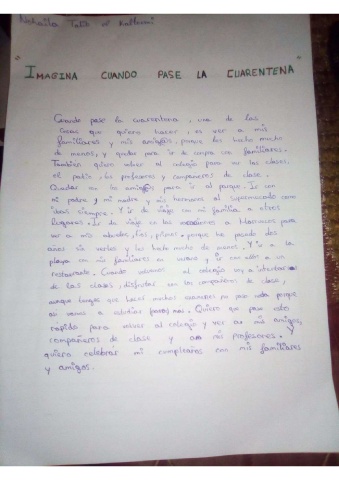 IMAGINA CUANDO PASE LA CUARENTENA
Cuando pase la cuarentena, una de las
cosas que quiero hacer, es ver a mis
familiares y mis amig@s, porque les hecho mucho
de menos, y quedar para ir de compra con familiares.
También quiero volver al colegio para ver las clases,
el patio, los profesores y compañeros de clase.
Quedar con los amig@s para ir al parque. Ir con
mi padre y mi madre y mis hermanos al supermercado como
ibas siempre. Y ir de viaje con mi familia a otros
lugares. Ir de viaje en las vacaciones a Marruecos para
ver a mis abuelos, tios, primos. porque he pasado dos
años sin verlos y les hecho mucho de menos. Y ir a la
playa con mis familiares en verano y ir con ellos a un
restaurante. Cuando volvamos al colegio voy a disfrutar
de las clases, disfrutar con los compañeros de clase,
aunque tengas que hacer muchos examenes no pasa nada porque
asi vamos a estudiar para
. Quiero que pase esto
rápido para volver al colegio y ver a mis amigos,
compañeros de clase y a mis profesores. Y
quiero celebrar mi cumpleaños con mis familiares
y amigos.